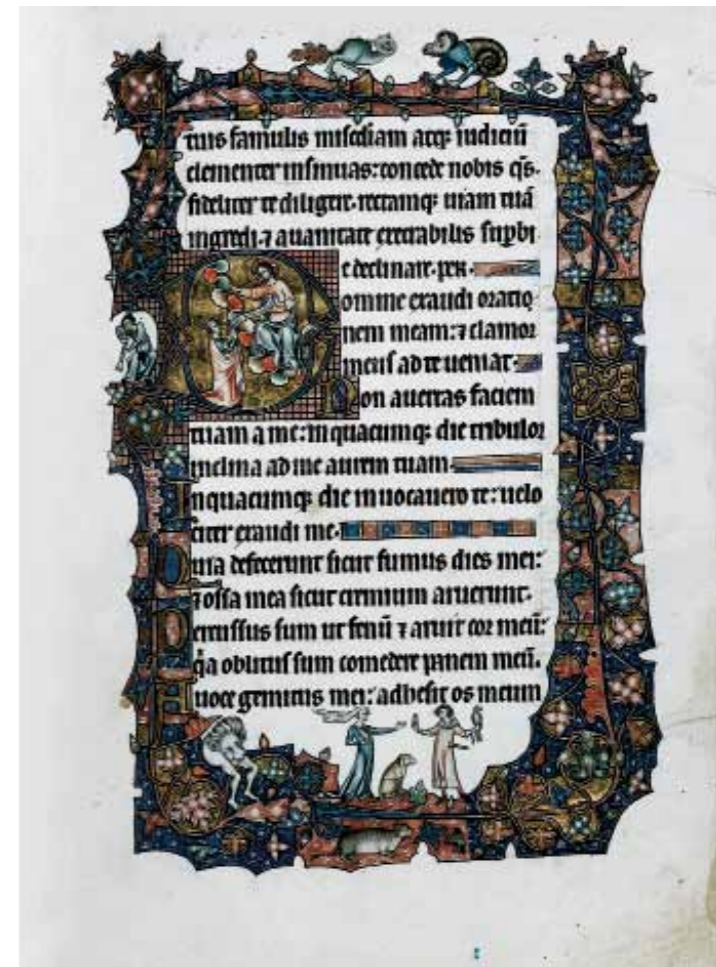 tuis famulis misc̄diam atq; iudiciū
clementer insinuas: concede nobis q̄s.
fideliter te diligere. rectamq; uiam tuā
ingredi. ⁊ a uanitate execrabilis supbi
e declinare. per.
omine exaudi oratio
nem meam: ⁊ clamor
meus ad te ueniat.
Non auertas faciem
tuam a me: in quacumq; die tribulor
inclina ad me aurem tuam.
In quacumq; die inuocauero te: uelo
citer exaudi me.
Quia defecerunt sicut fumus dies mei:
⁊ ossa mea sicut cremium aruerunt.
Percussus sum ut fenū ⁊ aruit cor meū:
q̄a oblitus sum comedere panem meū.
A uoce gemitus mei: adhesit os meum